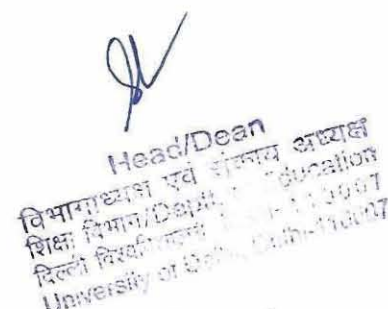 Head/Dean
विभागाध्यक्ष एवं संकाय अध्यक्ष
शिक्षा विभाग/Deptt. Education
दिल्ली विश्वविद्यालय
University of Delhi, Delhi-110007